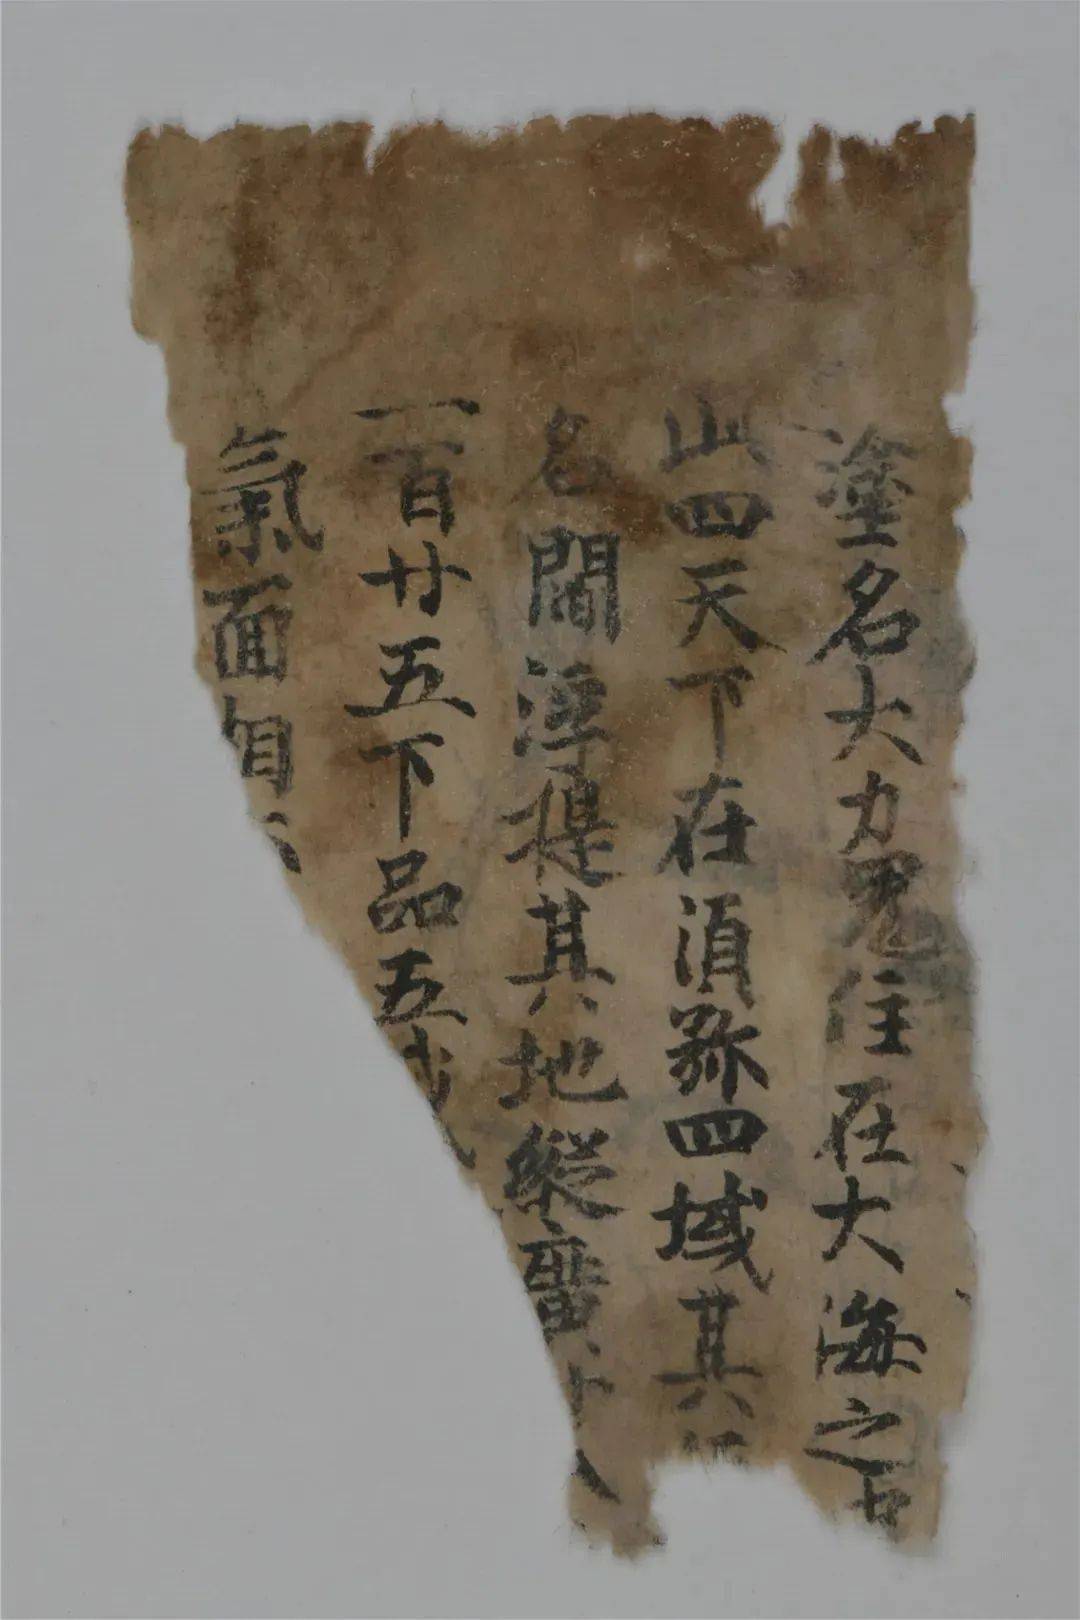 塗名大力鬼住在大海之
山四天下在須弥四域其
名閻浮提其地縱廣
一百廿五下品五
氣面